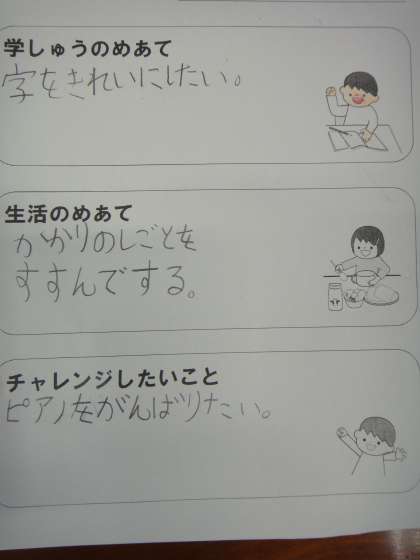 学しゅうのめあて
字をきれいにしたい。
生活のめあて
かかりのしごとを
すすんでする。
チャレンジしたいこと
ピアノをがんばりたい。